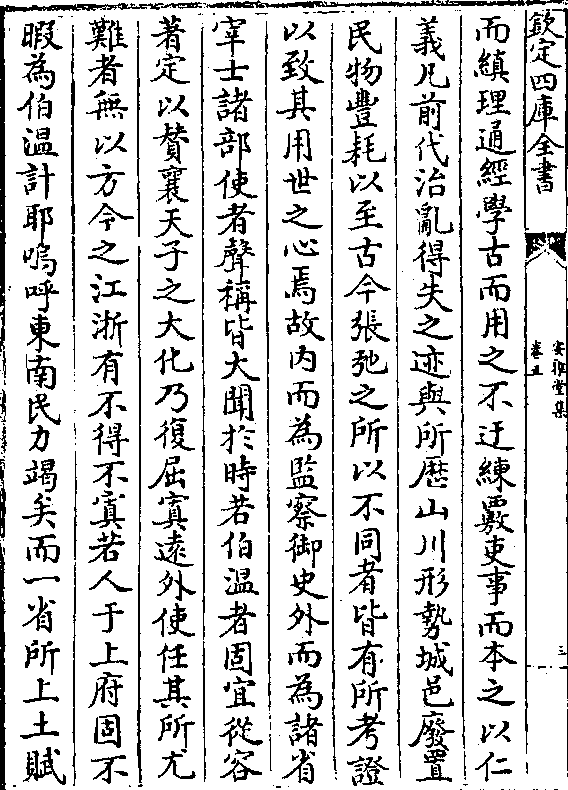 欽定四庫全書
安雅堂集
卷五
三
而縝理通經學古而用之不迂練覈吏事而本之以仁
義凡前代治亂得失之迹與所歴山川形勢城邑廢置
民物豐耗以至古今張弛之所以不同者皆有所考證
以致其用世之心焉故内而為監察御史外而為諸省
宰士諸部使者聲稱皆大聞於時若伯温者固宜從容
著定以賛襄天子之大化乃復屈寘逺外使任其所尤
難者無以方今之江浙有不得不寘若人于上府固不
暇為伯温計耶嗚呼東南民力竭矣而一省所上土賦